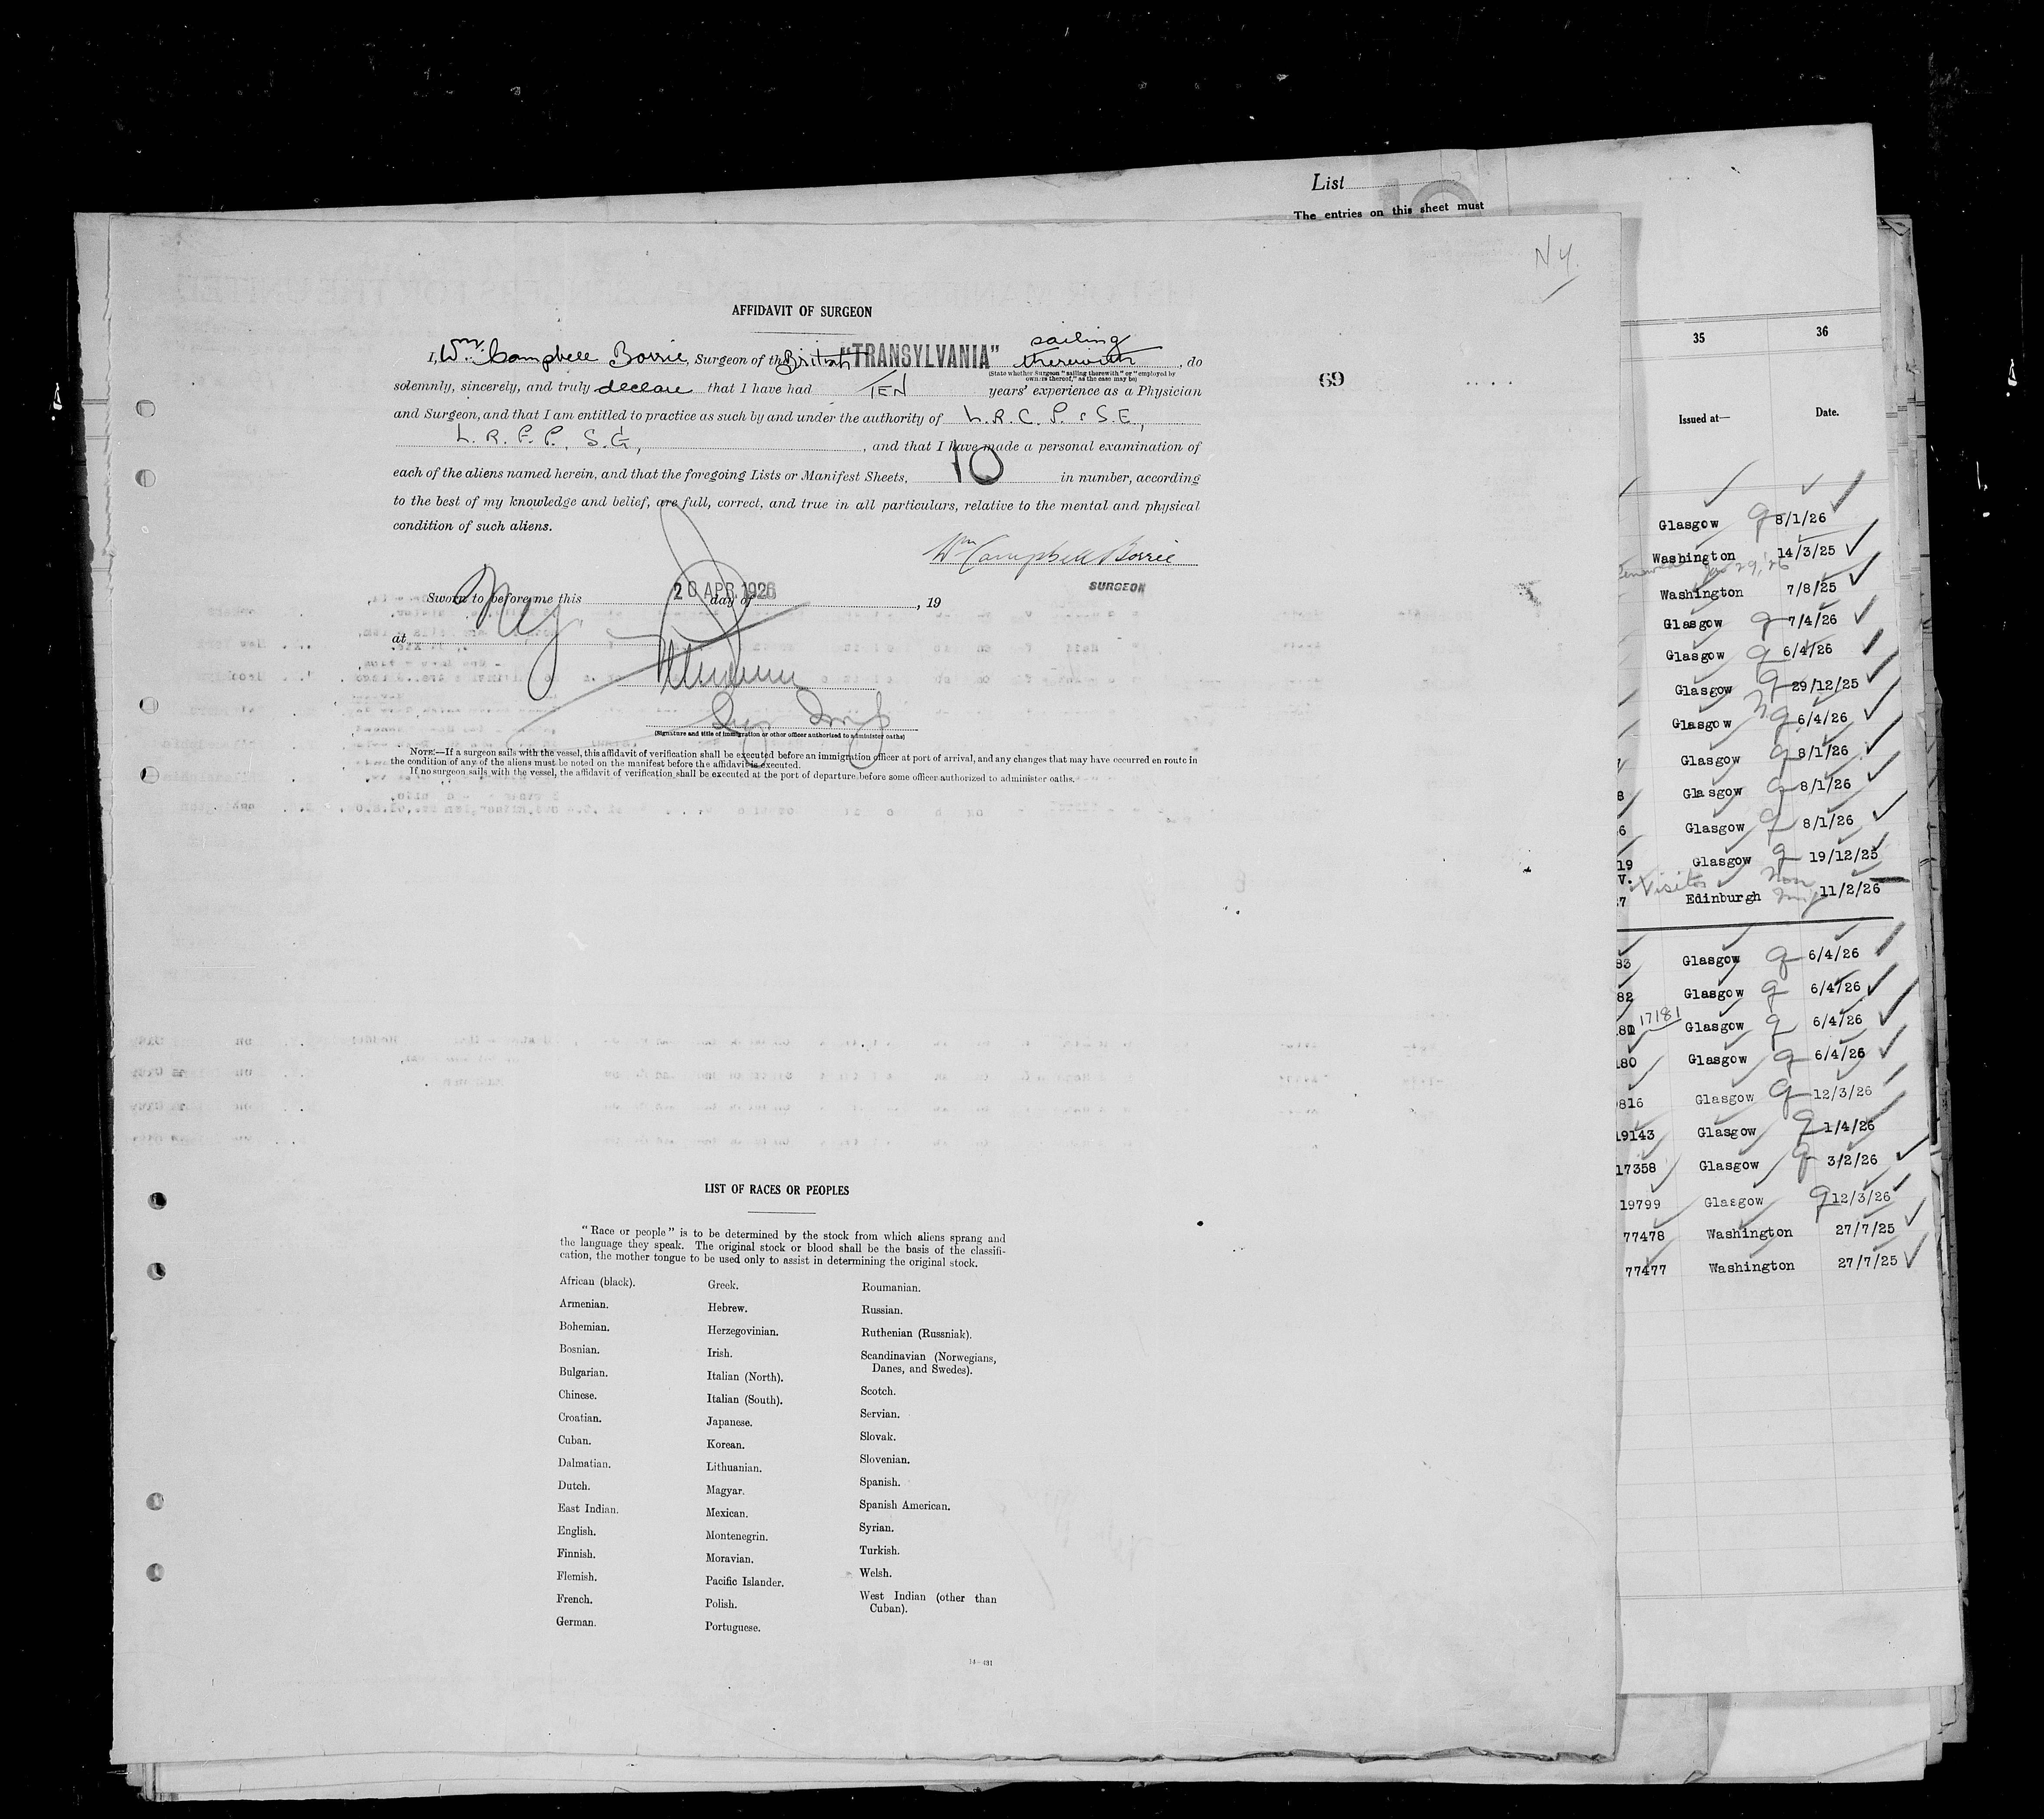 List
The entries on this sheet must
N Y.
AFFIDAVIT OF SURGEON
I, Wm. Campbell Borrie, Surgeon of the British "TRANSYLVANIA" sailing therewith, do
(State whether Surgeon "sailing therewith" or "employed by
owners thereof," as the case may be)
solemnly, sincerely, and truly declare that I have had TEN years' experience as a Physician
and Surgeon, and that I am entitled to practice as such by and under the authority of L.R.C.P. & S.E.,
L.R.F.P.S.G., and that I have made a personal examination of
each of the aliens named herein, and that the foregoing Lists or Manifest Sheets, 10 in number, according
to the best of my knowledge and belief, are full, correct, and true in all particulars, relative to the mental and physical
condition of such aliens.
Wm Campbell Borrie
SURGEON
Sworn to before me this 20 APR. 1926 day of , 19
at N.Y.
Insp
(Signature and title of immigration or other officer authorized to administer oaths)
NOTE.—If a surgeon sails with the vessel, this affidavit of verification shall be executed before an immigration officer at port of arrival, and any changes that may have occurred en route in
the condition of any of the aliens must be noted on the manifest before the affidavit is executed.
If no surgeon sails with the vessel, the affidavit of verification shall be executed at the port of departure before some officer authorized to administer oaths.
69
LIST OF RACES OR PEOPLES
"Race or people" is to be determined by the stock from which aliens sprang and
the language they speak. The original stock or blood shall be the basis of the classifi-
cation, the mother tongue to be used only to assist in determining the original stock.
African (black).
Armenian.
Bohemian.
Bosnian.
Bulgarian.
Chinese.
Croatian.
Cuban.
Dalmatian.
Dutch.
East Indian.
English.
Finnish.
Flemish.
French.
German.
Greek.
Hebrew.
Herzegovinian.
Irish.
Italian (North).
Italian (South).
Japanese.
Korean.
Lithuanian.
Magyar.
Mexican.
Montenegrin.
Moravian.
Pacific Islander.
Polish.
Portuguese.
Roumanian.
Russian.
Ruthenian (Russniak).
Scandinavian (Norwegians,
Danes, and Swedes).
Scotch.
Servian.
Slovak.
Slovenian.
Spanish.
Spanish American.
Syrian.
Turkish.
Welsh.
West Indian (other than
Cuban).
14—431
35 36
Issued at— Date.
Glasgow 8/1/26
Washington 14/3/25
Jan 29, '26
Washington 7/8/25
Glasgow 7/4/26
Glasgow 6/4/26
Glasgow 29/12/25
Glasgow 6/4/26
Glasgow 8/1/26
8 Glasgow 8/1/26
6 Glasgow 8/1/26
19 Glasgow 19/12/25
V. Visitor Non
7 Edinburgh Imm 11/2/26
83 Glasgow 6/4/26
82 Glasgow 6/4/26
17181 Glasgow 6/4/26
180 Glasgow 6/4/26
816 Glasgow 12/3/26
19143 Glasgow 1/4/26
17358 Glasgow 3/2/26
19799 Glasgow 12/3/26
77478 Washington 27/7/25
77477 Washington 27/7/25